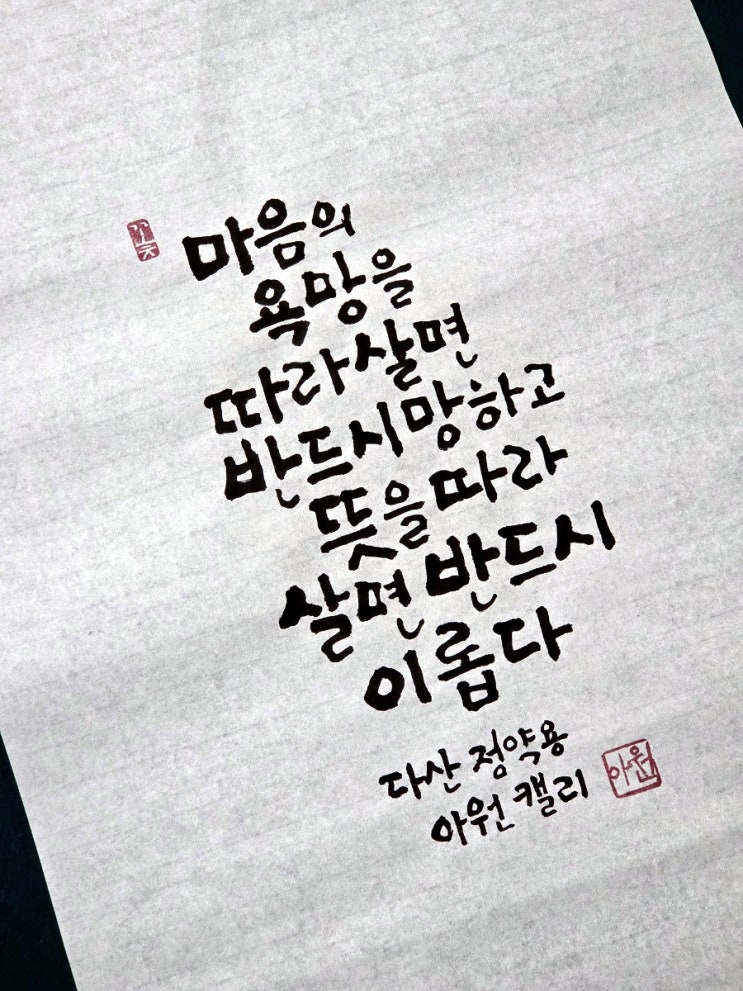 꽃
마음의
욕망을
따라 살면
반드시 망하고
뜻을 따라
살면 반드시
이롭다
다산 정약용
아원 캘리
아원